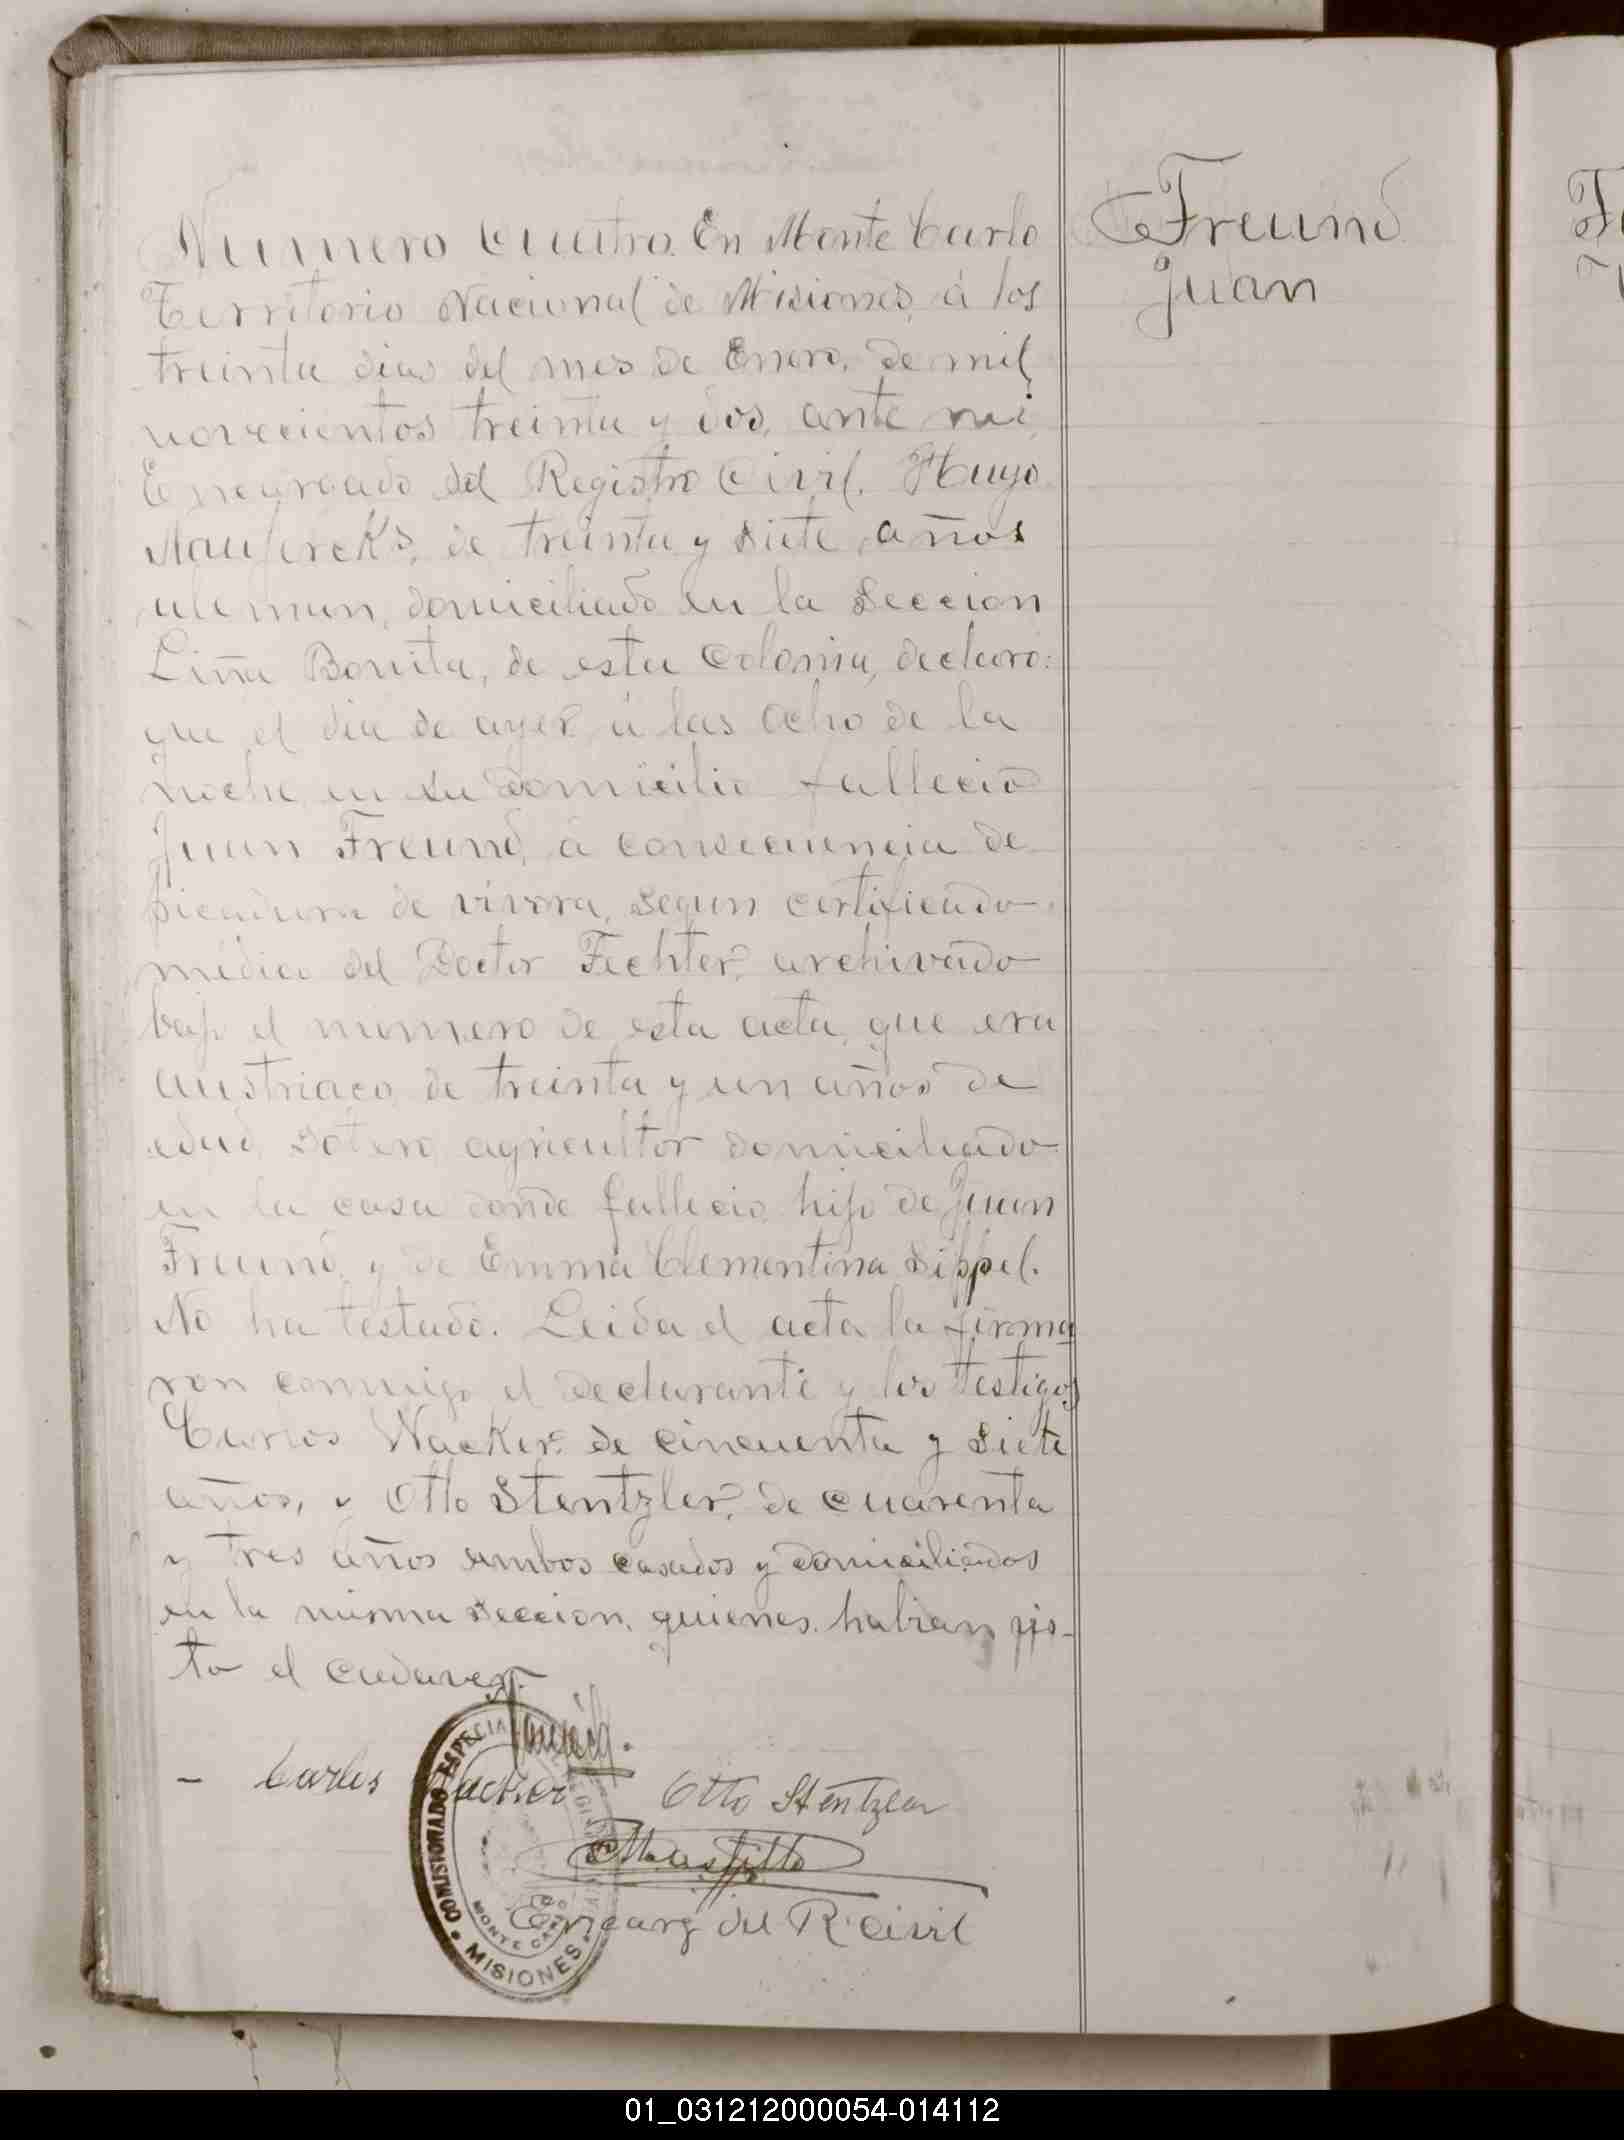 Numero cuatro. En Monte Carlo
Territorio Nacional de Misiones, á los
treinta dias del mes de Enero, de mil
novecientos treinta y dos, ante mi
Encargado del Registro Civil, Hugo
de treinta y siete años
aleman, domiciliado en la Seccion
Liña Bonita, de esta Colonia, declaro:
que el dia de ayer á las ocho de la
noche en su domicilio fallecio
Juan Freund, á consecuencia de
picadura de vivora, segun certificado
médico del Doctor Fechter, archivado
bajo el numero de esta acta, que era
austriaco, de treinta y un años de
edad, sotero, agricultor domiciliado
en la casa donde fallecio, hijo de Juan
Freund, y de Emma Clementina Sippel.
No ha testado. Leida el acta la firma
ron conmigo el declarante y los testigos
Carlos Wacker, de cincuenta y siete
años, y Otto Stentzler, de cuarenta
y tres años ambos casados y domiciliados
en la misma seccion, quienes habian vis-
to el cadaver.
- Carlos Wacker Otto Stentzler
Encarg del R. Civil
COMISIONADO ESPECIAL
MONTE CARLO
MISIONES
Freund
Juan
01_031212000054-014112